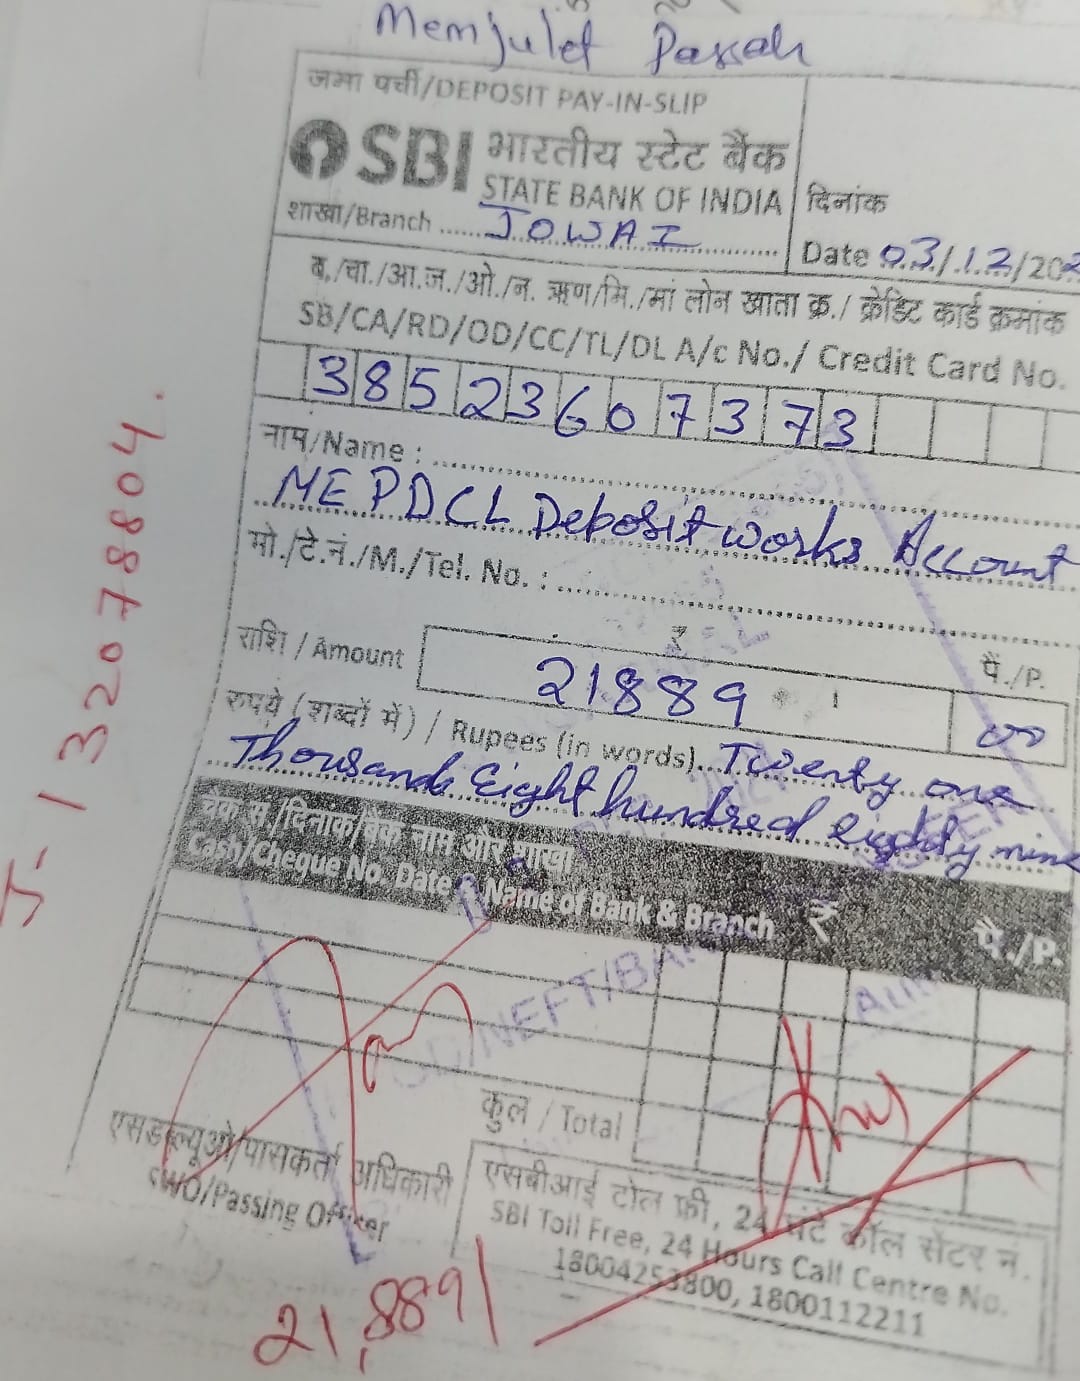 Memjulet Passah
जमा पर्ची/DEPOSIT PAY-IN-SLIP
SBI भारतीय स्टेट बैंक
STATE BANK OF INDIA
शाखा/Branch ...... JOWAI
दिनांक
Date 03/12/202
ब./चा./आ.ज./ओ./न. ऋण/मि./मां लोन खाता क्र./ क्रेडिट कार्ड क्रमांक
SB/CA/RD/OD/CC/TL/DL A/c No./ Credit Card No.
38523607373
नाम/Name :
MEPDCL Deposit works Account
मो./टे.नं./M./Tel. No. :
राशि / Amount
₹
पै./P.
21889
00
रुपये (शब्दों में) / Rupees (in words).. Twenty one
Thousand Eight hundred eighty nine
चेक सं/दिनांक/बैंक नाम और शाखा
Cash/Cheque No. Date & Name of Bank & Branch
₹
पै./P.
NEFT/BA
कुल / Total
एसडब्ल्यूओ/पासकर्ता अधिकारी
SWO/Passing Officer
एसबीआई टोल फ्री, 24 घंटे कॉल सेंटर नं.
SBI Toll Free, 24 Hours Call Centre No.
18004253800, 1800112211
21,889/
J-132078804.